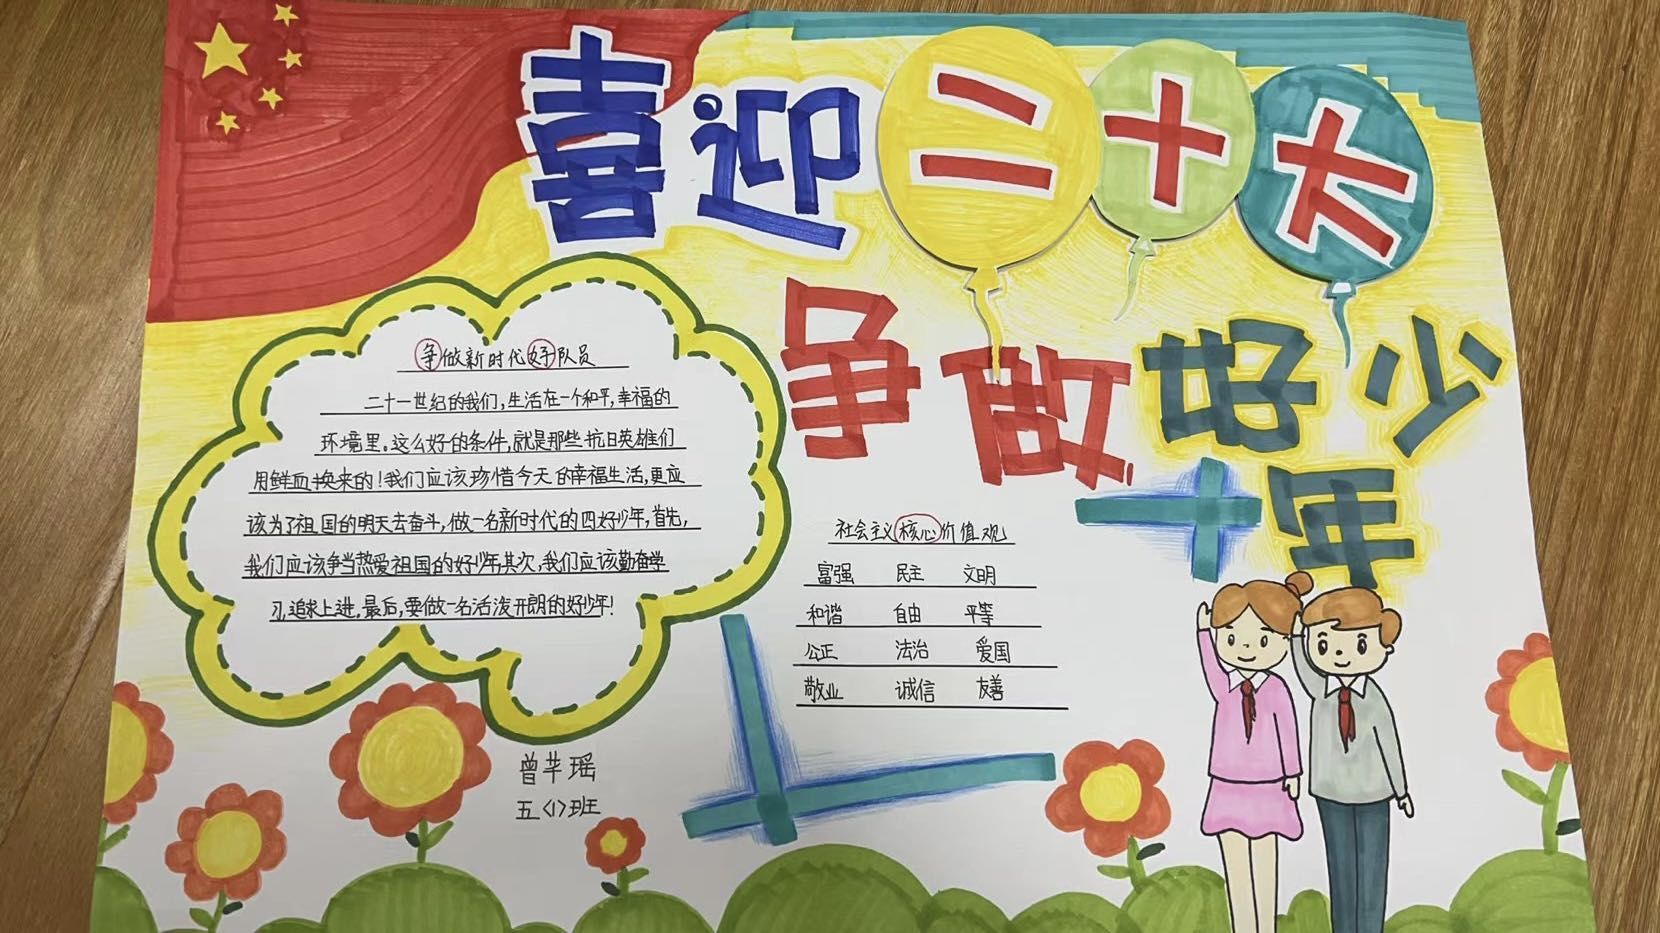 喜迎二十大
争做好少年
争做新时代好队员
二十一世纪的我们,生活在一个和平,幸福的
环境里。这么好的条件,就是那些抗日英雄们
用鲜血换来的!我们应该珍惜今天的幸福生活,更应
该为了祖国的明天去奋斗,做一名新时代的四好少年,首先,
我们应该争当热爱祖国的好少年,其次,我们应该勤奋学
习,追求上进,最后,要做一名活泼开朗的好少年!
社会主义核心价值观
富强 民主 文明
和谐 自由 平等
公正 法治 爱国
敬业 诚信 友善
曾芊瑶
五(1)班